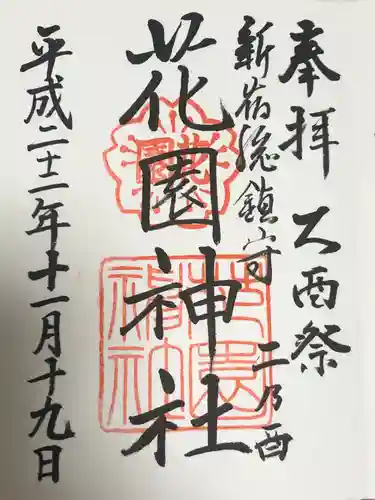 奉拝 大酉祭
新宿総鎮守 二乃酉
花園神社
平成二十二年十一月十九日
花園
花園神社